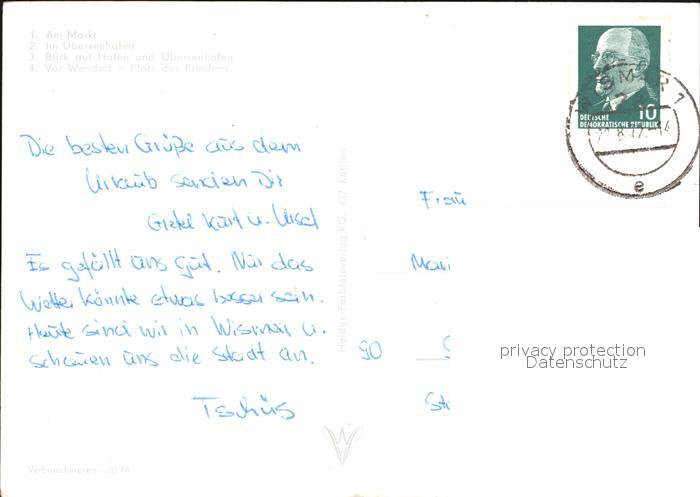 1. Am Markt
2. Im Überseehafen
3. Blick auf Hafen und Überseehafen
4. Vor Wendorf – Platz des Friedens
Die besten Grüße aus dem
Urlaub senden Dir
Gretel Kurt u. Ursel
Es gefällt uns gut. Nur das
Wetter könnte etwas besser sein.
Heute sind wir in Wismar u.
schauen uns die Stadt an.
Tschüs
Verbraucherpreis -,20 M
Heldge-Farbfotoverlag KG, 437 Köthen
10
DEUTSCHE
DEMOKRATISCHE REPUBLIK
e
Frau
90
privacy protection
Datenschutz